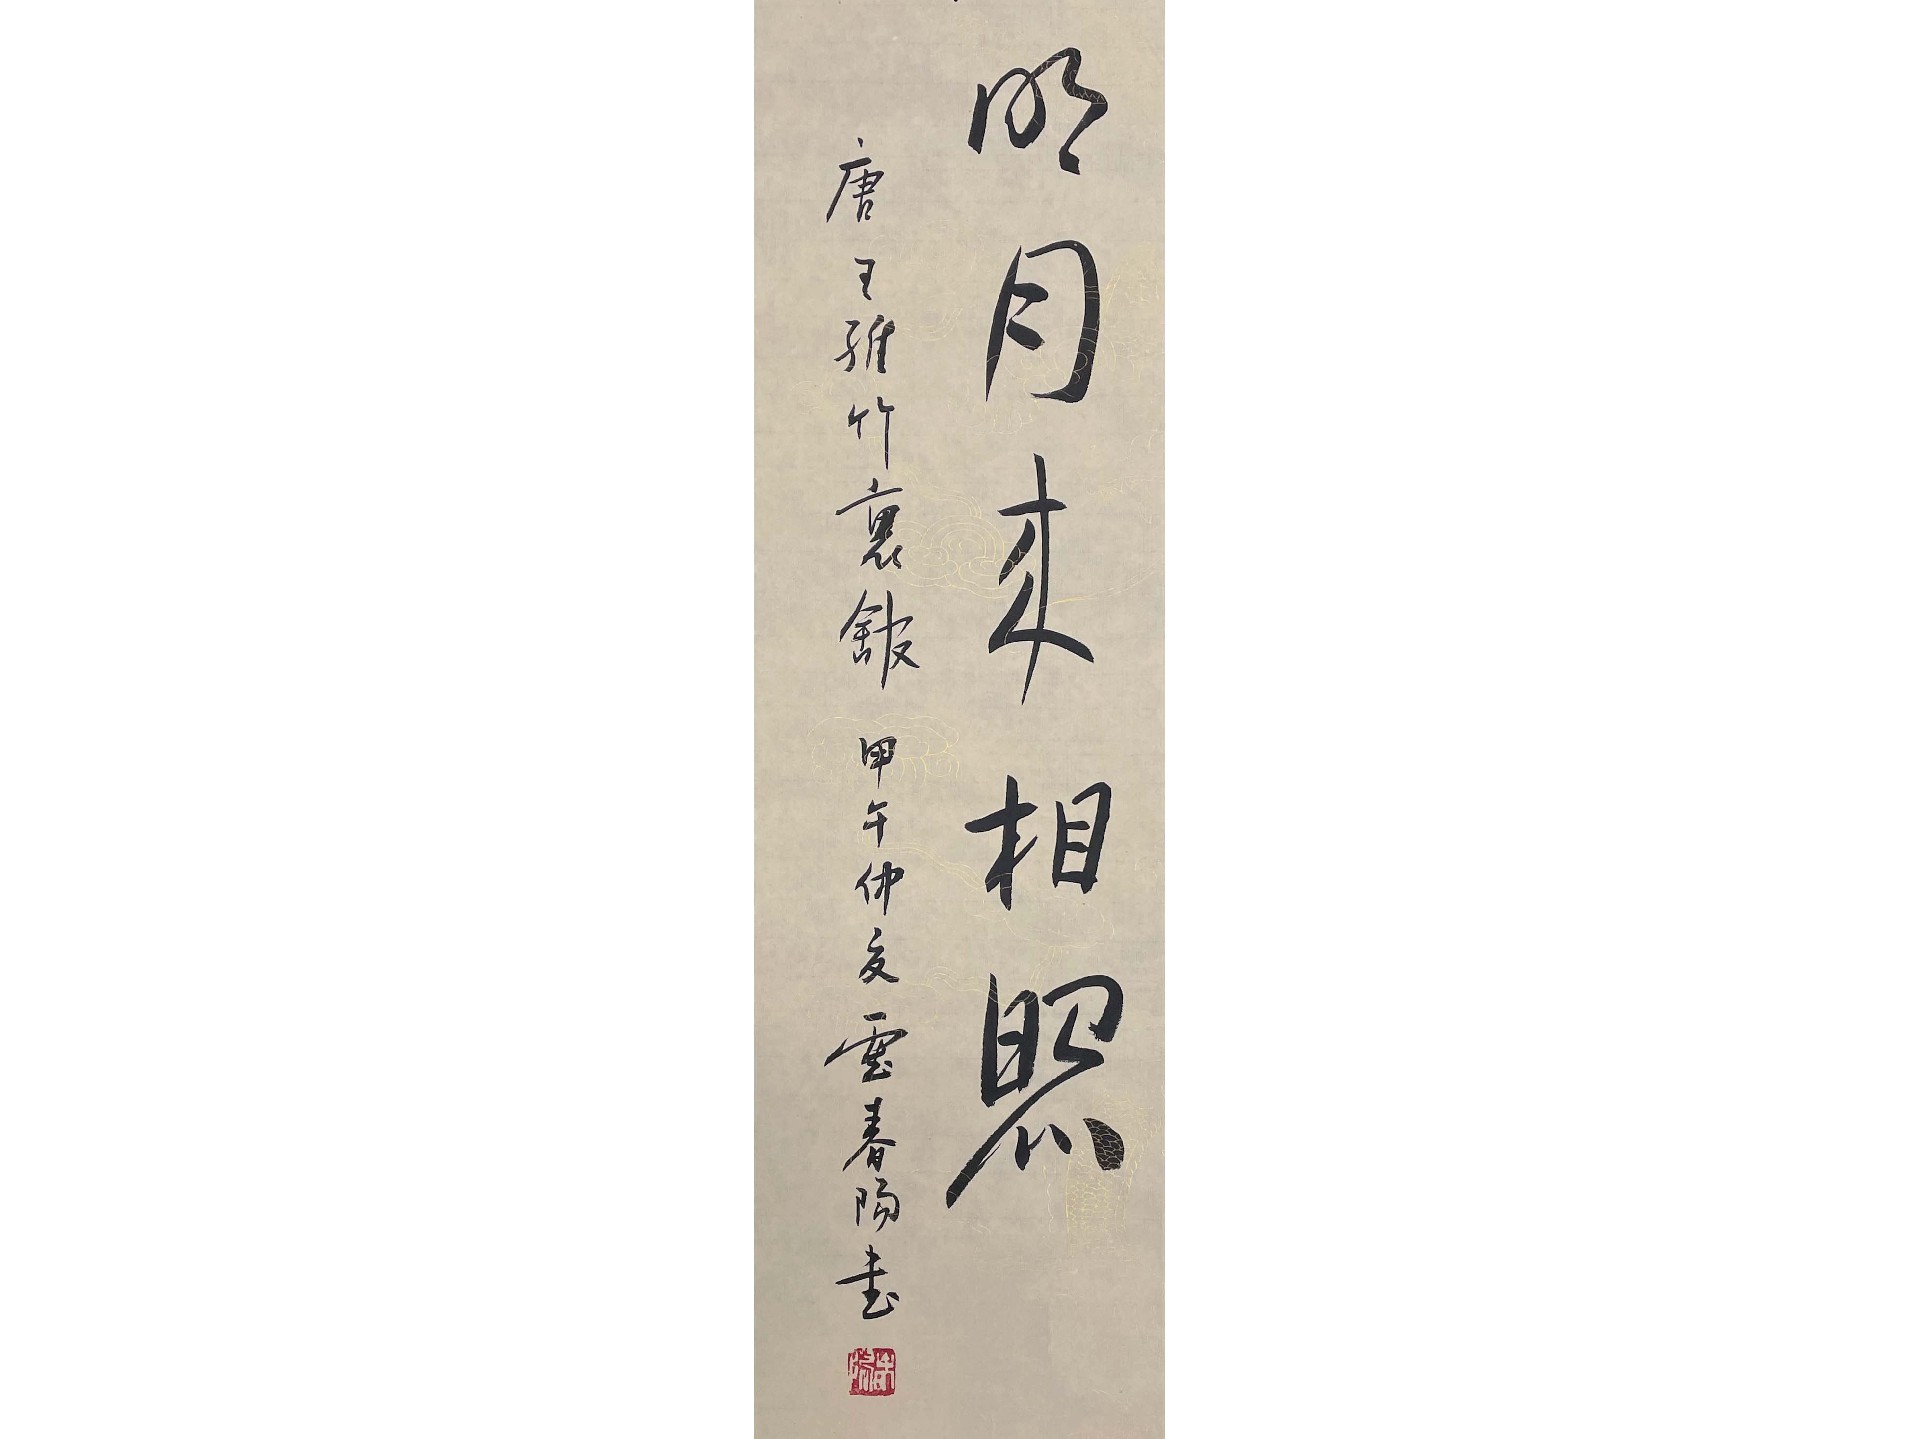 明月来相照
唐王維竹裏館 甲午仲夏雲春陽书